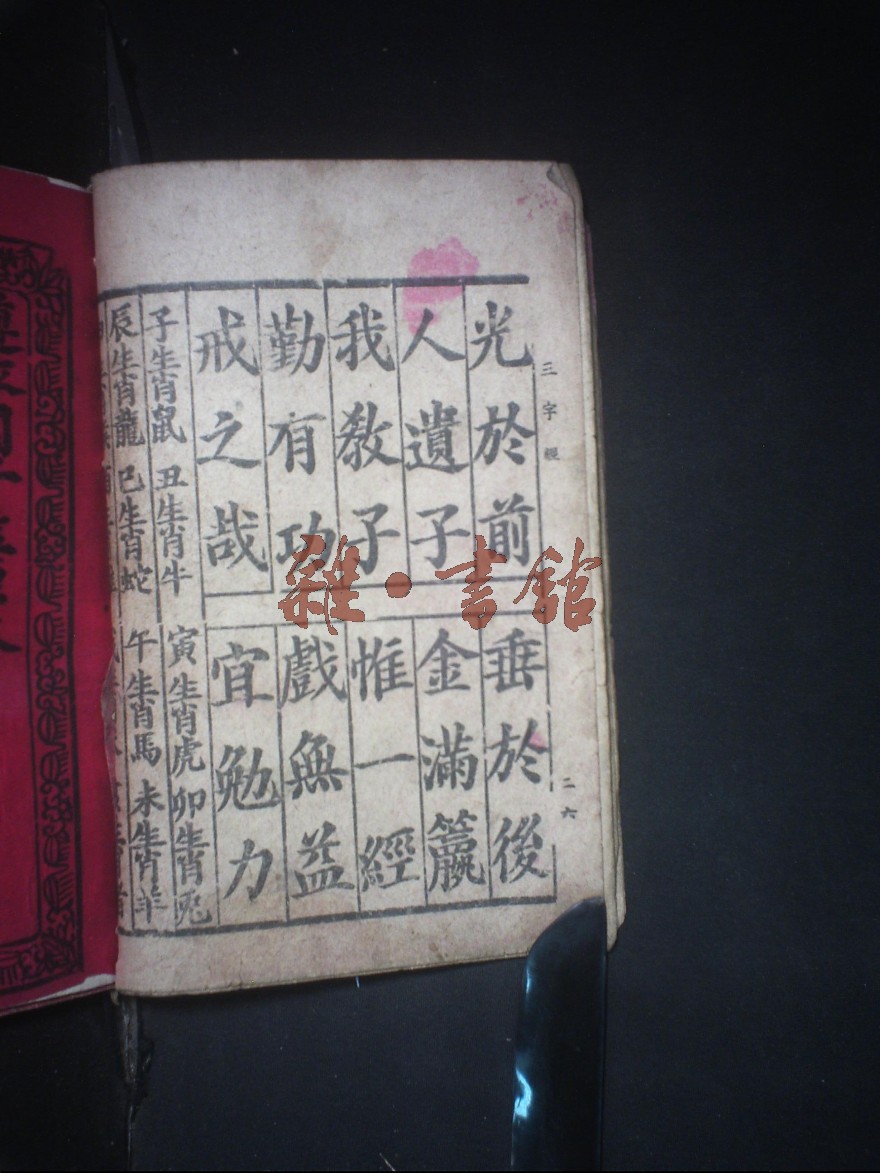 三字經
二六
光於前
垂於後
人遺子
金滿籯
我教子
惟一經
勤有功
戲無益
戒之哉
宜勉力
子生肖鼠 丑生肖牛 寅生肖虎 卯生肖兎
辰生肖龍 巳生肖蛇 午生肖馬 未生肖羊
雜·書館